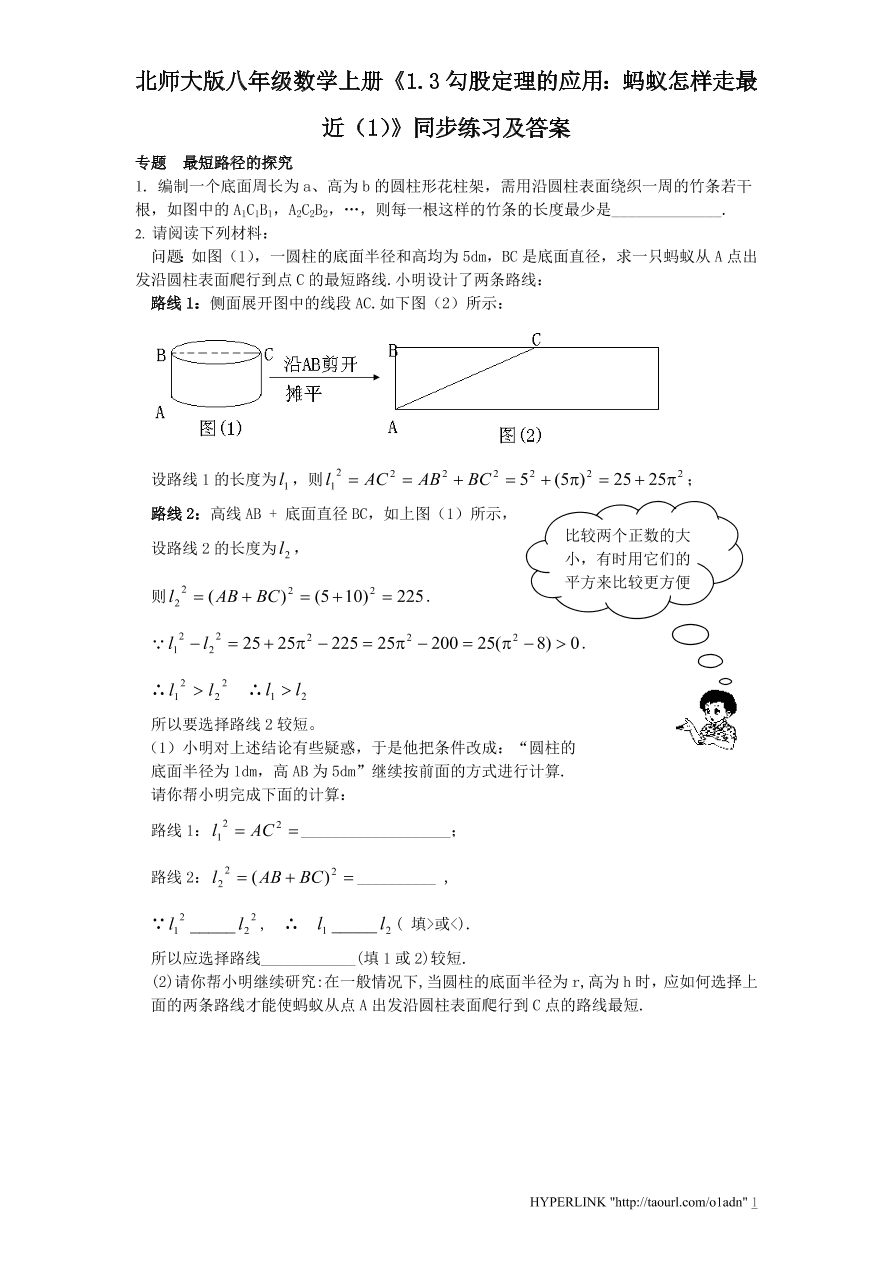 北师大版八年级数学上册《1.3 勾股定理的应用：蚂蚁怎样走最
近（1）》同步练习及答案
专题　最短路径的探究
1. 编制一个底面周长为 a、高为 b 的圆柱形花柱架，需用沿圆柱表面绕织一周的竹条若干
根，如图中的 A₁C₁B₁，A₂C₂B₂，…，则每一根这样的竹条的长度最少是______________.
2. 请阅读下列材料：
问题：如图（1），一圆柱的底面半径和高均为 5dm，BC 是底面直径，求一只蚂蚁从 A 点出
发沿圆柱表面爬行到点 C 的最短路线.小明设计了两条路线：
路线 1：侧面展开图中的线段 AC.如下图（2）所示：
B C A 沿AB剪开 摊平 图(1)
B C A 图(2)
设路线 1 的长度为 l₁，则 l₁² = AC² = AB² + BC² = 5² + (5π)² = 25 + 25π²；
路线 2：高线 AB + 底面直径 BC，如上图（1）所示，
设路线 2 的长度为 l₂，
比较两个正数的大
小，有时用它们的
平方来比较更方便
则 l₂² = (AB + BC)² = (5 + 10)² = 225.
∵ l₁² − l₂² = 25 + 25π² − 225 = 25π² − 200 = 25(π² − 8) > 0.
∴ l₁² > l₂²　∴ l₁ > l₂
所以要选择路线 2 较短。
（1）小明对上述结论有些疑惑，于是他把条件改成：“圆柱的
底面半径为 1dm，高 AB 为 5dm”继续按前面的方式进行计算.
请你帮小明完成下面的计算：
路线 1：l₁² = AC² = ___________________；
路线 2：l₂² = (AB + BC)² = __________ ，
∵ l₁² ______ l₂²，　∴　l₁ ______ l₂（ 填>或<）.
所以应选择路线____________(填 1 或 2)较短.
(2)请你帮小明继续研究:在一般情况下,当圆柱的底面半径为 r,高为 h 时，应如何选择上
面的两条路线才能使蚂蚁从点 A 出发沿圆柱表面爬行到 C 点的路线最短.
HYPERLINK "http://taourl.com/o1adn" 1